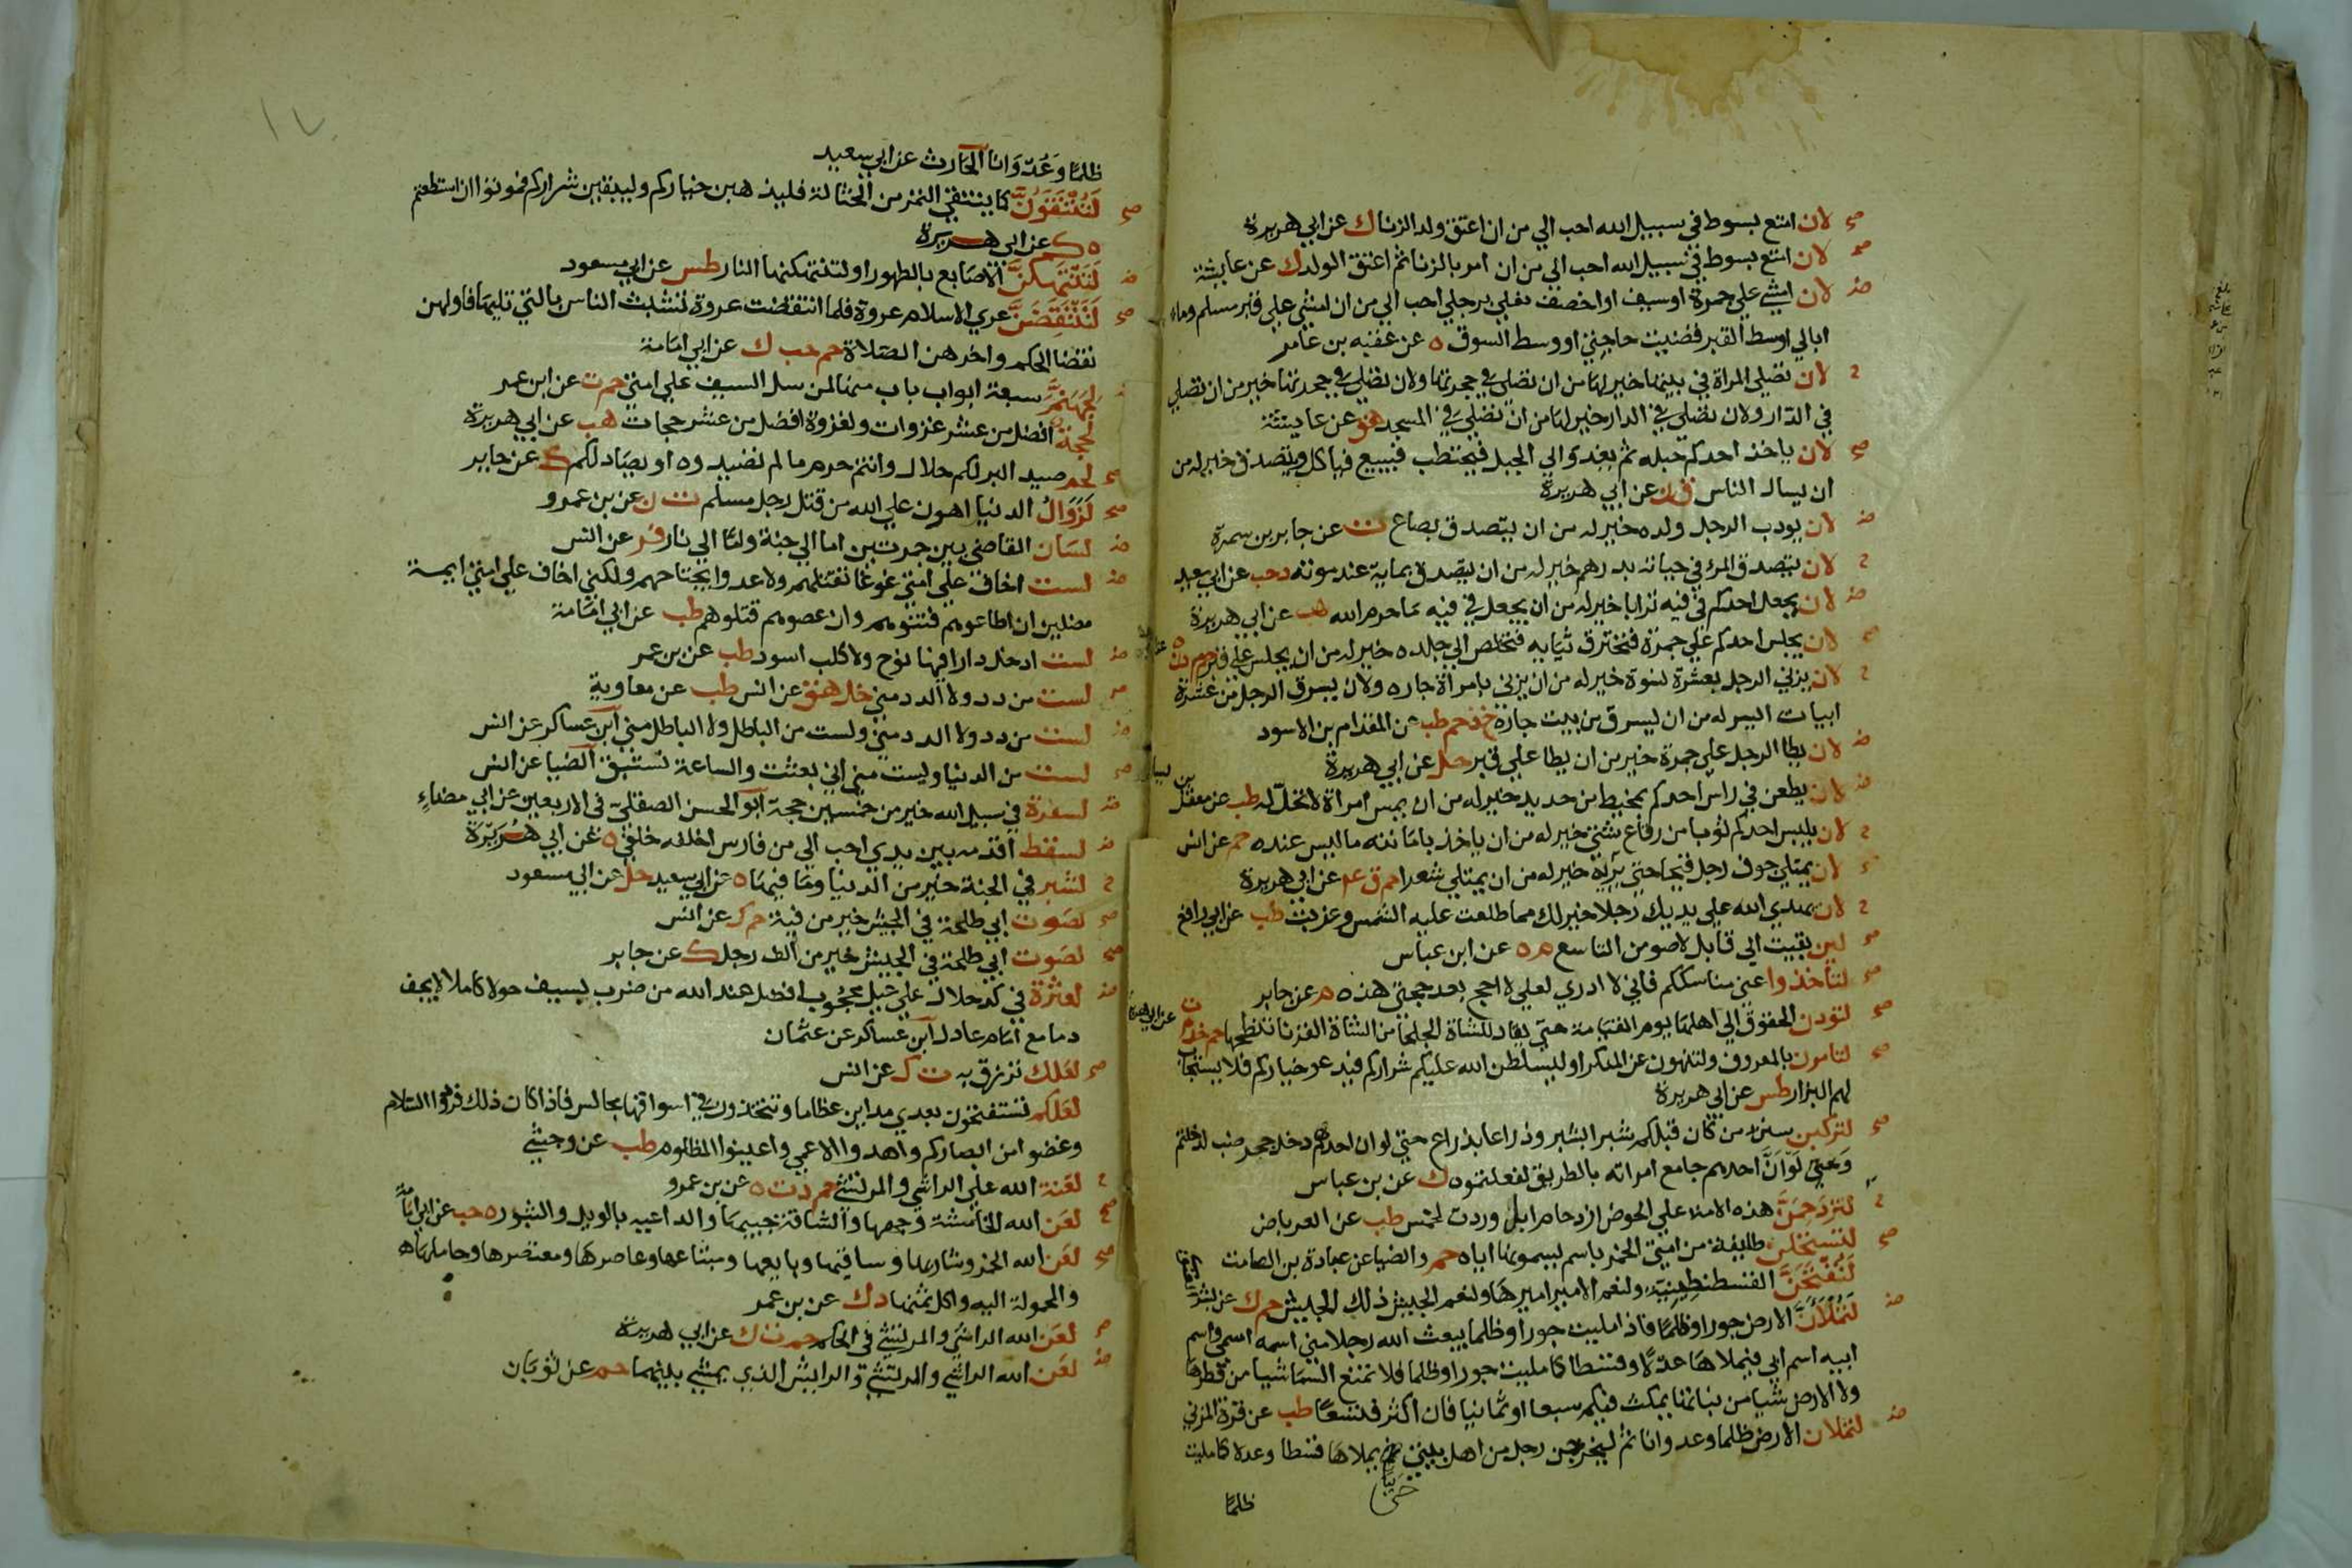 صح لان امتع بسوط في سبيل الله احب الي من ان اعتق ولد الزنا ك عن ابي هريرة
صح لان امتع بسوط في سبيل الله احب الي من ان امر بالزنا ثم اعتق الولد ك عن عايشة
ض لان امشي علي جمرة او سيف او اخصف نعلي برجلي احب الي من ان امشي علي قبر مسلم وما
ابالي اوسط القبر قضيت حاجتي او وسط السوق ه عن عقبه بن عامر
ح لان تصلي المراة في بيتها خير لها من ان تصلي في حجرتها ولان تصلي في حجرتها خير من ان تصلي
في الدار ولان تصلي في الدار خير لها من ان تصلي في المسجد هق عن عايشة
صح لان ياخذ احدكم حبله ثم يغدو الي الجبل فيحتطب فيبيع فياكل ويتصدق خير له من
ان يسال الناس ق ن عن ابي هريرة
ض لان يودب الرجل ولده خير له من ان يتصدق بصاع ت عن جابر بن سمرة
ح لان يتصدق المرء في حياته بدرهم خير له من ان يتصدق بماية عند موته د حب عن ابي سعيد
ض لان يجعل احدكم في فيه ترابا خير له من ان يجعل في فيه ما حرم الله هب عن ابي هريرة
صح لان يجلس احدكم علي جمرة فتحترق ثيابه فتخلص الي جلده خير له من ان يجلس علي قبر حم م د ن ه
ح لان يزني الرجل بعشرة نسوة خير له من ان يزني بامراة جاره ولان يسرق الرجل من عشرة
ابيات ايسر له من ان يسرق من بيت جاره خد حم طب عن المقدام بن الاسود
ض لان يطا الرجل علي جمرة خير من ان يطا علي قبر حل عن ابي هريرة
ض لان يطعن في راس احدكم بمخيط من حديد خير له من ان يمس امراة لا تحل له طب عن معقل بن يسار
ح لان يلبس احدكم ثوبا من رقاع شتي خير له من ان ياخذ بامانته ما ليس عنده حم عن انس
صح لان يمتلي جوف رجل قيحا حتي يريه خير له من ان يمتلي شعرا حم ق عه عن ابي هريرة
ح لان يهدي الله علي يديك رجلا خير لك مما طلعت عليه الشمس وغربت طب عن ابي رافع
صح لين بقيت الي قابل لاصومن التاسع م ه عن ابن عباس
صح لتاخذوا عني مناسككم فاني لا ادري لعلي لا احج بعد حجتي هذه م عن جابر
صح لتودن الحقوق الي اهلها يوم القيامة حتي يقاد للشاة الجلحا من الشاة القرنا تنطحها حم خد م ت عن ابي هريرة
صح لتامرن بالمعروف ولتنهون عن المنكر او ليسلطن الله عليكم شراركم فيدعو خياركم فلا يستجاب
لهم البزار طس عن ابي هريرة
صح لتركبن سنن من كان قبلكم شبرا بشبر وذراعا بذراع حتي لو ان احدهم دخل جحر ضب لدخلتم
وحتي لو ان احدهم جامع امراته بالطريق لفعلتموه ك عن بن عباس
ح لتزدحمن هذه الامة علي الحوض ازدحام ابل وردت لخمس طب عن العرباض
صح لتستحلن طايفة من امتي الخمر باسم يسمونها اياه حم والضيا عن عبادة بن الصامت
لتفتحن القسطنطينية ولنعم الامير اميرها ولنعم الجيش ذلك الجيش حم ك عن بشر
ض لتملان الارض جورا وظلما فاذا مليت جورا وظلما يبعث الله رجلا مني اسمه اسمي واسم
ابيه اسم ابي فيملاها عدلا وقسطا كما مليت جورا وظلما فلا تمنع السما شيا من قطرها
ولا الارض شيا من نباتها يمكث فيكم سبعا او ثمانيا فان اكثر فتسعا طب عن قرة المزني
ض لتملان الارض ظلما وعدوانا ثم ليخرجن رجل من اهل بيتي حتي يملاها قسطا وعدلا كما مليت
ظلما
١٧
ظلما وعدوانا الحارث عن ابي سعيد
صح لتنتقون كما ينتقي التمر من الحثالة فليذهبن خياركم وليبقين شراركم فموتوا ان استطعتم
ه ك عن ابي هريرة
ض لتنتهكن الاصابع بالطهور او لتنتهكنها النار طس عن ابي مسعود
صح لتنتقضن عري الاسلام عروة فلما انتقضت عروة تشبث الناس بالتي تليها فاولهن
نقضا الحكم واخرهن الصلاة حم حب ك عن ابي امامة
لجهنم سبعة ابواب باب منها لمن سل السيف علي امتي حم ت عن ابن عمر
لحجة افضل من عشر غزوات ولغزوة افضل من عشر حجات هب عن ابي هريرة
صح لحم صيد البر لكم حلال وانتم حرم ما لم تصيدوه او يصاد لكم ك عن جابر
صح لزوال الدنيا اهون علي الله من قتل رجل مسلم ت ن عن بن عمرو
ض لسان القاضي بين جمرتين اما الي جنة واما الي نار فر عن انس
ض لست اخاف علي امتي غوغا تقتلهم ولا عدوا يجتاحهم ولكني اخاف علي امتي ايمة
مضلين ان اطاعوهم فتنوهم وان عصوهم قتلوهم طب عن ابي امامة
ض لست ادخل دارا فيها نوح ولا كلب اسود طب عن بن عمر
لست من دد ولا الدد مني خد هق عن انس طب عن معاوية
ض لست من دد ولا الدد مني ولست من الباطل ولا الباطل مني ابن عساكر عن انس
صح لست من الدنيا وليست مني اني بعثت والساعة تستبق الضيا عن انس
لسفرة في سبيل الله خير من خمسين حجة ابو الحسن الصقلي في الاربعين عن ابي مضاء
ض لسقط اقدمه بين يدي احب الي من فارس اخلفه خلفي ه عن ابي هريرة
ح لشبر في الجنة خير من الدنيا وما فيها ه عن ابي سعيد حل عن ابي مسعود
صح لصوت ابي طلحة في الجيش خير من فية حم ك عن انس
صح لصوت ابي طلحة في الجيش خير من الف رجل ك عن جابر
ض لعثرة في كد حلال علي عيل محجوب افضل عند الله من ضرب بسيف حولا كاملا لا يجف
دما مع امام عادل ابن عساكر عن عثمان
صح لعلك ترزق به ت ك عن انس
لعلكم تستفتحون بعدي مداين عظاما وتتخذون في اسواقها مجالس فاذا كان ذلك فردوا السلام
وغضوا من ابصاركم واهدوا الاعمي واعينوا المظلوم طب عن وحشي
ح لعنة الله علي الراشي والمرتشي حم د ت ه عن بن عمرو
صح لعن الله الخامشة وجهها والشاقة جيبها والداعيه بالويل والثبور ه حب عن ابي امامة
صح لعن الله الخمر وشاربها وساقيها وبايعها ومبتاعها وعاصرها ومعتصرها وحاملها
والمحمولة اليه واكل ثمنها د ك عن بن عمر
لعن الله الراشي والمرتشي في الحكم حم ت ك عن ابي هريرة
ض لعن الله الراشي والمرتشي والرايش الذي يمشي بينهما حم عن ثوبان